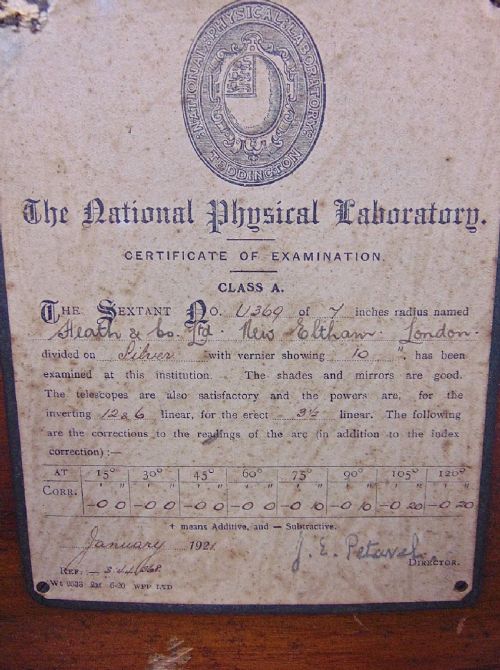 NATIONAL PHYSICAL LABORATORY
TEDDINGTON
The National Physical Laboratory.
CERTIFICATE OF EXAMINATION.
CLASS A.
THE SEXTANT NO. U369 of 7 inches radius named
Heath & Co. Ltd. New Eltham. London.
divided on Silver with vernier showing 10 ″, has been
examined at this institution. The shades and mirrors are good.
The telescopes are also satisfactory and the powers are, for the
inverting 12 & 6 linear, for the erect 3½ linear. The following
are the corrections to the readings of the arc (in addition to the index
correction) :—
AT 15° 30° 45° 60° 75° 90° 105° 120°
CORR. ′ ″ ′ ″ ′ ″ ′ ″ ′ ″ ′ ″ ′ ″ ′ ″
-0 0 -0 0 -0 0 -0 0 -0 10 -0 10 -0 20 -0 20
+ means Additive, and — Subtractive.
January 1921
J. E. Petavel.
DIRECTOR.
REF.
2M 6-20 WPP LTD